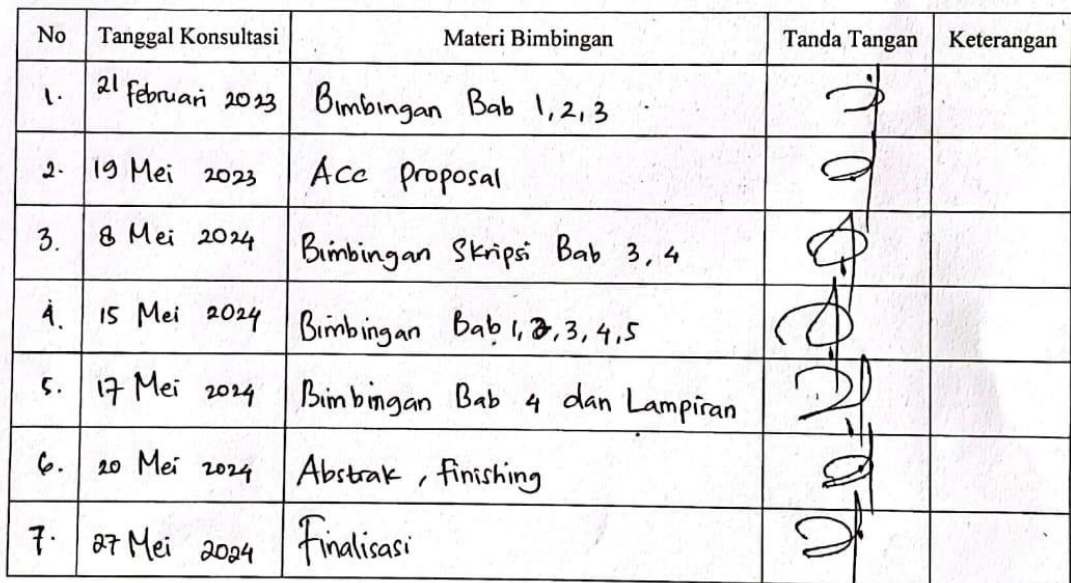 No Tanggal Konsultasi Materi Bimbingan Tanda Tangan Keterangan
1. 21 Februari 2023 Bimbingan Bab 1, 2, 3
2. 19 Mei 2023 Acc Proposal
3. 8 Mei 2024 Bimbingan Skripsi Bab 3, 4
4. 15 Mei 2024 Bimbingan Bab 1, 2, 3, 4, 5
5. 17 Mei 2024 Bimbingan Bab 4 dan Lampiran
6. 20 Mei 2024 Abstrak, finishing
7. 27 Mei 2024 Finalisasi